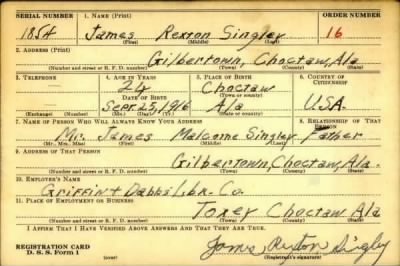 SERIAL NUMBER 1. NAME (Print) ORDER NUMBER
1854 James Rexton Singley 16
(First) (Middle) (Last)
2. ADDRESS (Print)
Gilbertown, Choctaw, Ala
(Number and street or R. F. D. number) (Town) (County) (State)
3. TELEPHONE 4. AGE IN YEARS 5. PLACE OF BIRTH 6. COUNTRY OF CITIZENSHIP
24 Choctaw
DATE OF BIRTH (Town or county)
Sept. 25, 1916 Ala U.S.A.
(Exchange) (Number) (Mo.) (Day) (Yr.) (State or country)
7. NAME OF PERSON WHO WILL ALWAYS KNOW YOUR ADDRESS 8. RELATIONSHIP OF THAT PERSON
Mr. James Malcome Singley Father
(Mr., Mrs., Miss) (First) (Middle) (Last)
9. ADDRESS OF THAT PERSON
Gilbertown, Choctaw, Ala.
(Number and street or R. F. D. number) (Town) (County) (State)
10. EMPLOYER'S NAME
Griffin + Dabbs Lbr. Co.
11. PLACE OF EMPLOYMENT OR BUSINESS
Toxey Choctaw Ala
(Number and street or R. F. D. number) (Town) (County) (State)
I AFFIRM THAT I HAVE VERIFIED ABOVE ANSWERS AND THAT THEY ARE TRUE.
REGISTRATION CARD
D. S. S. Form 1
James Rexton Singley
(Registrant's signature)